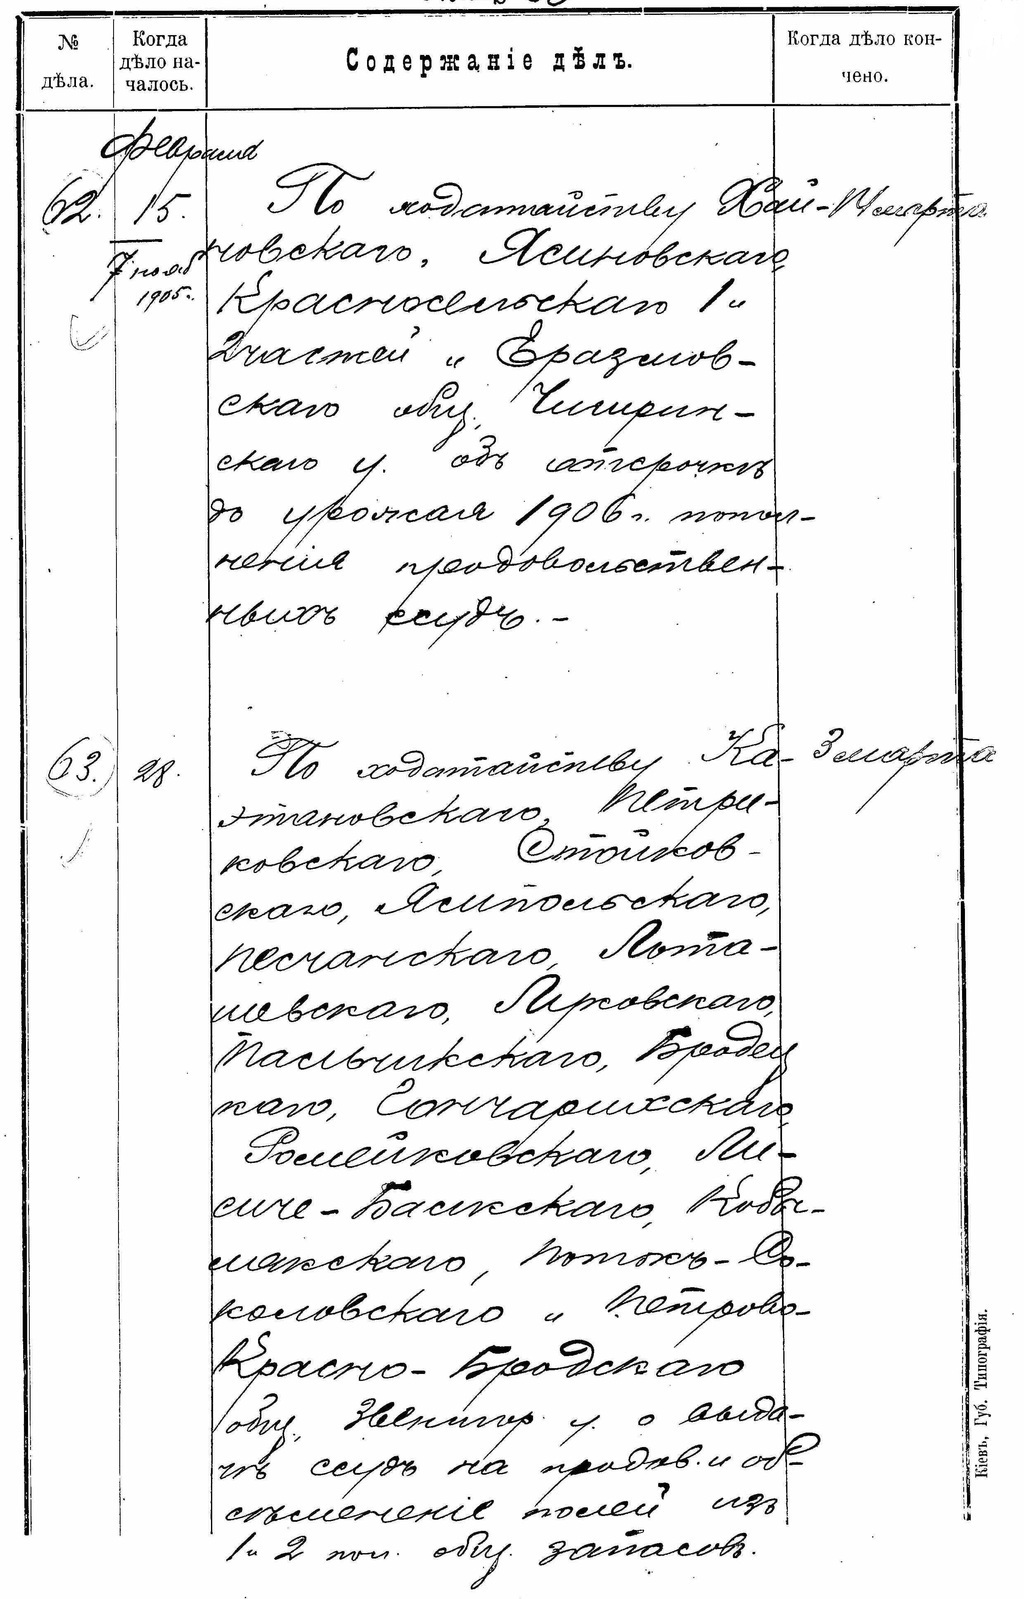 № дѣла.
Когда дѣло на-чалось.
Содержаніе дѣлъ.
Когда дѣло кон-чено.
Февраля
62. 15. По ходатайству Хай- марта
7 нояб 1905 г.
новскаго, Ясиновскаго,
Красносельскаго 1 и
2 частей и Еразмов-
скаго общ. Чигирин-
скаго у. объ отсрочкѣ
до урожая 1906 г. попол-
ненія продовольствен-
ныхъ ссудъ. -
63. 28. По ходатайству Ка- 3 марта
этановскаго, Петри-
ковскаго, Стойков-
скаго, Ямпольскаго,
Песчанскаго, Лота-
шевскаго, Ярковскаго,
Пальчикскаго, Бродец
каго, Гончарихскаго,
Ромейковскаго, Ли-
сиче-Балкскаго, Кобы-
лякскаго, Потокъ-Со-
коловскаго и Петрово-
Красно-Бродскаго
общ. Звенигор. у. о выда-
чѣ ссудъ на продов. и об-
сѣмененіе полей изъ
1 и 2 пол. общ. запасов.
Кіевъ, Губ. Типографія.